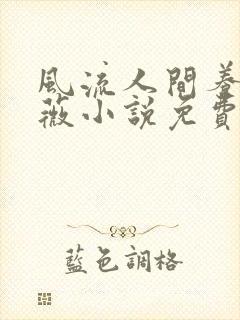 風流人間養
薇小說免費
藍色調格